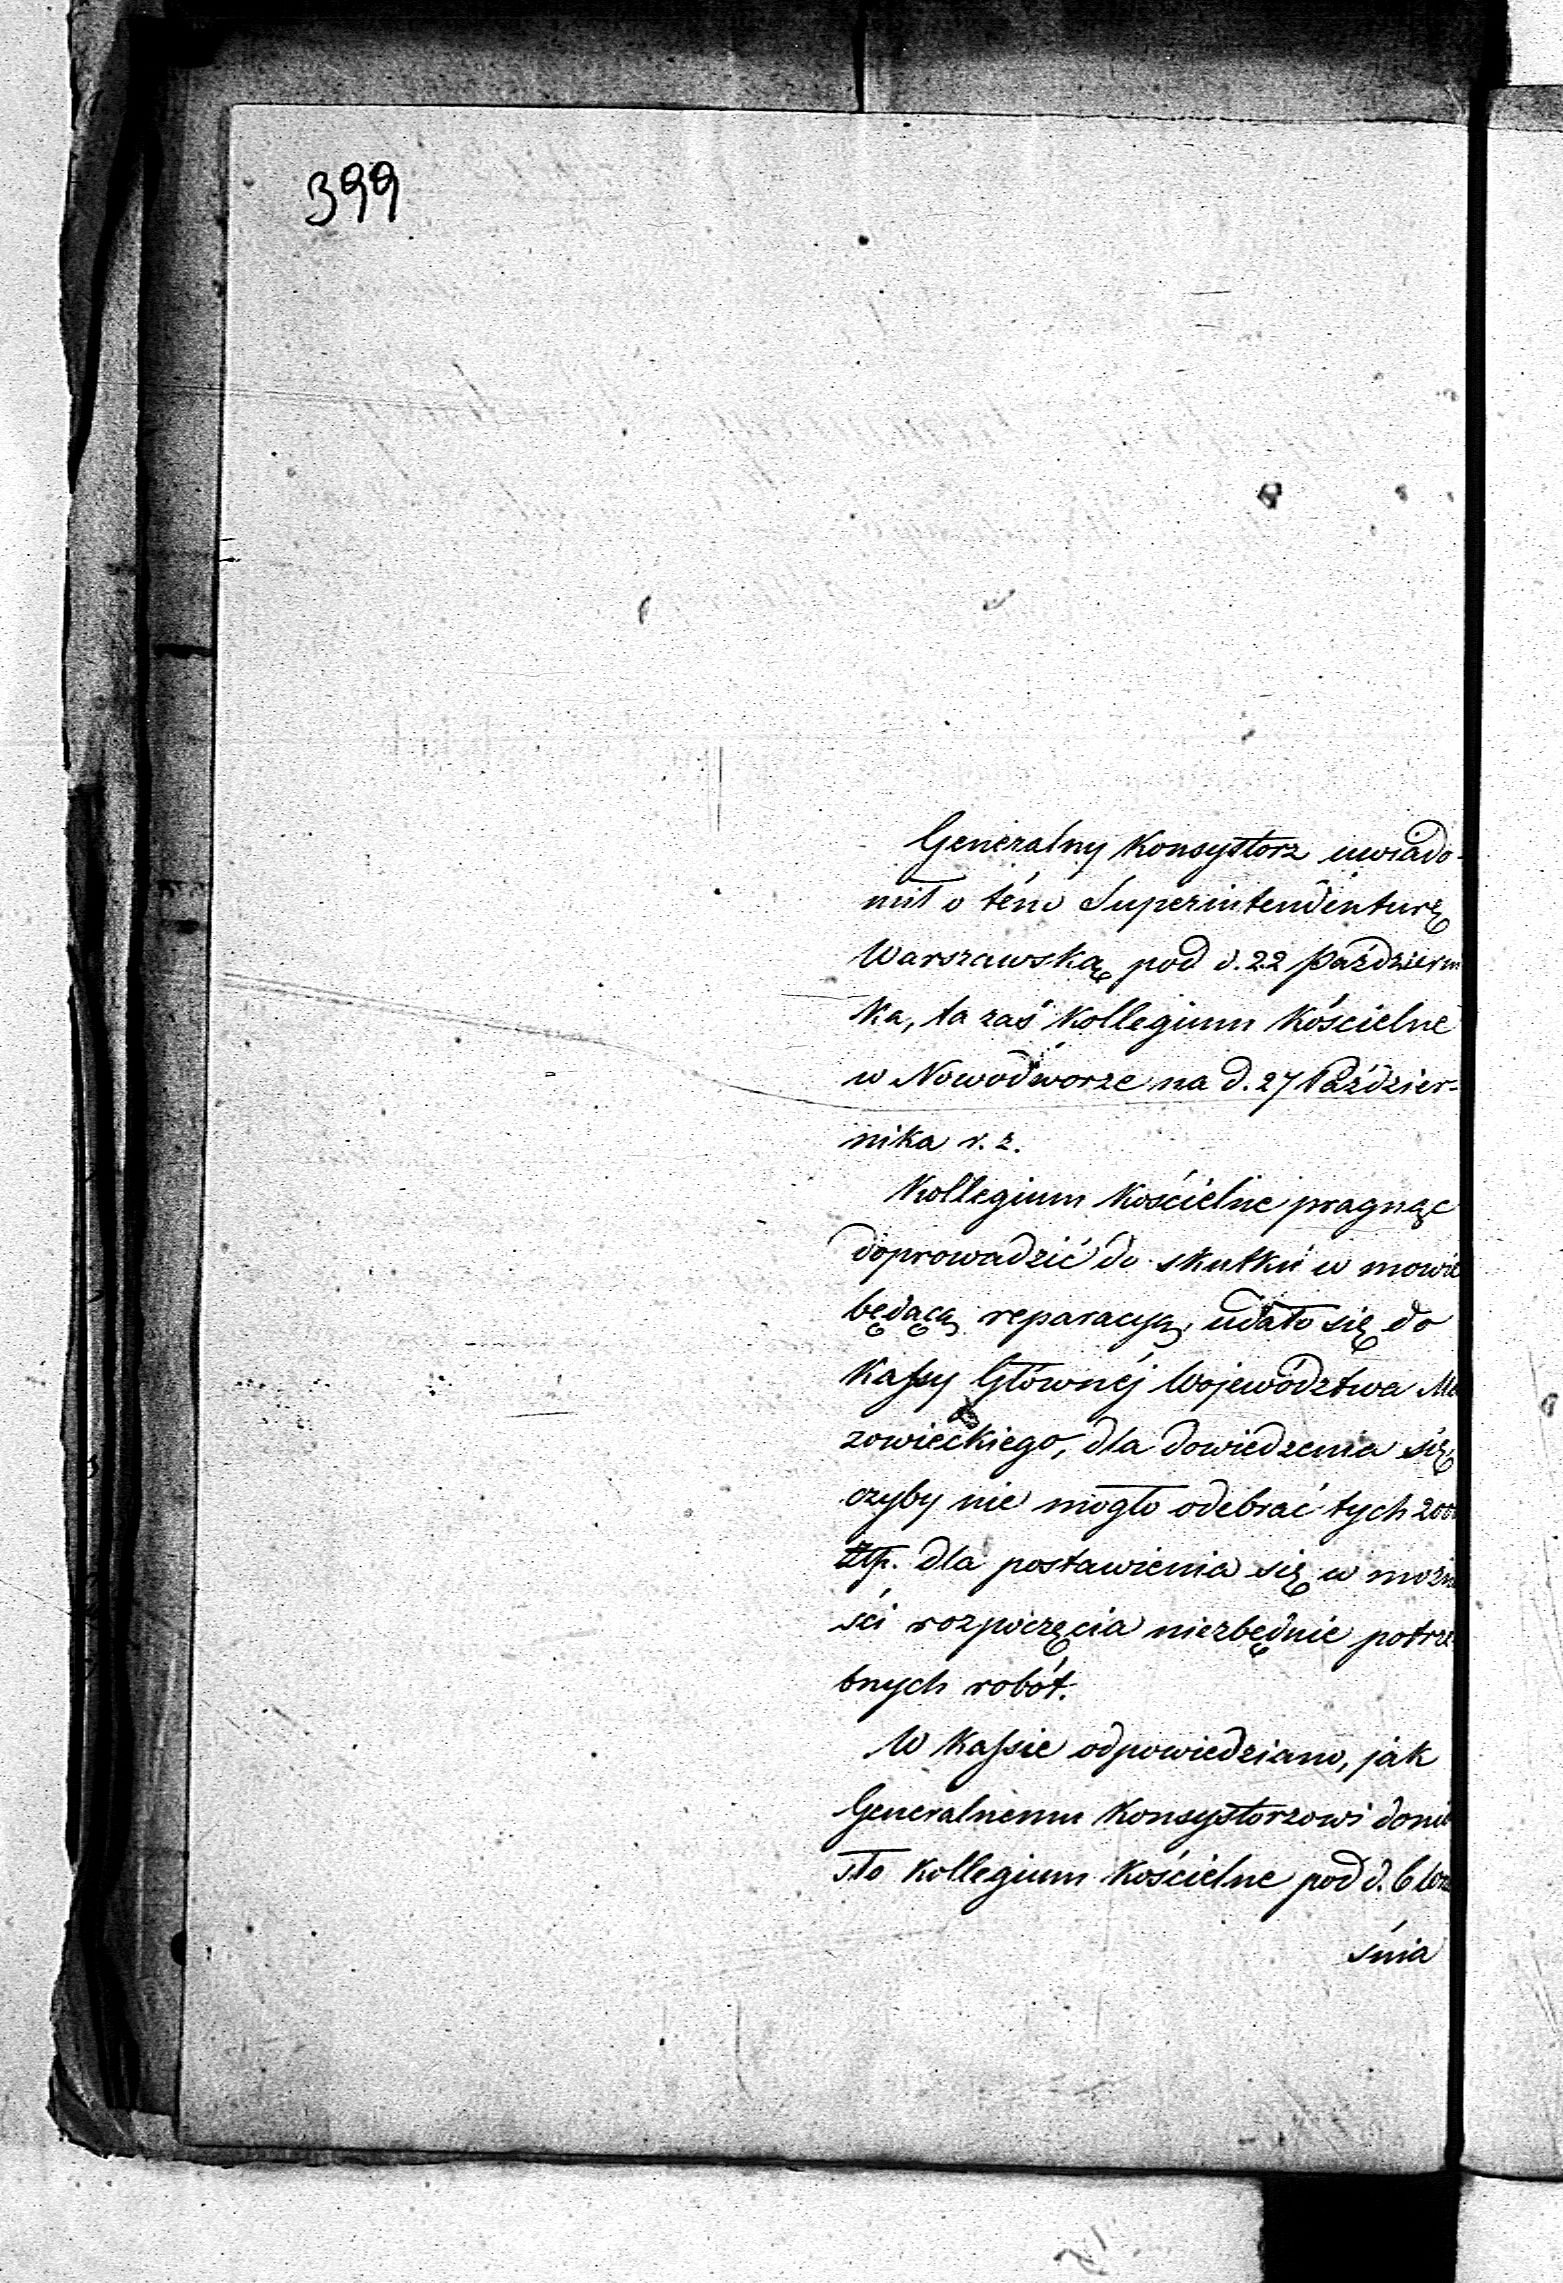 399
Generalny Konsystorz uwiado-
mił o tém Superintendenturę
Warszawską pod d. 22 Październ
ka, ta zaś Kollegium Kościelne
w Nowodworze na d. 27 Paździer-
nika r. z.
Kollegium Kościelne pragnąc
doprowadzić do skutku w mowie
będącą reparacyą, udało się do
Kassy Głównéj Województwa Ma
zowieckiego, dla dowiedzenia się,
czyby nie mogło odebrać tych 200
Złp. dla postawienia się w możn
ści rozpoczęcia niezbędnie potrze
bnych robót.
W Kassie odpowiedziano, jak
Generalnemu Konsystorzowi donie
sło Kollegium Kościelne pod d. 6
śnia